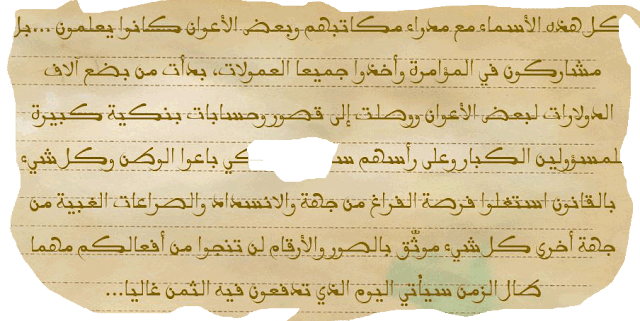 كل هذه الأسماء مع مدراء مكاتبهم وبعض الأعوان كانوا يعلمون ...بل
مشاركون في المؤامرة وأخذوا جميعا العمولات، بدأت من بضع آلاف
الدولارات لبعض الأعوان ووصلت إلى قصور وحسابات بنكية كبيرة
لمسؤولين الكبار وعلى رأسهم باعوا الوطن وكل شيء
بالقانون استغلوا فرصة الفراغ من جهة والانسداد والصراعات الغبية من
جهة أخرى كل شيء موثّق بالصور والأرقام لن تنجوا من أفعالكم مهما
طال الزمن سيأتي اليوم الذي تدفعون فيه الثمن غاليا...